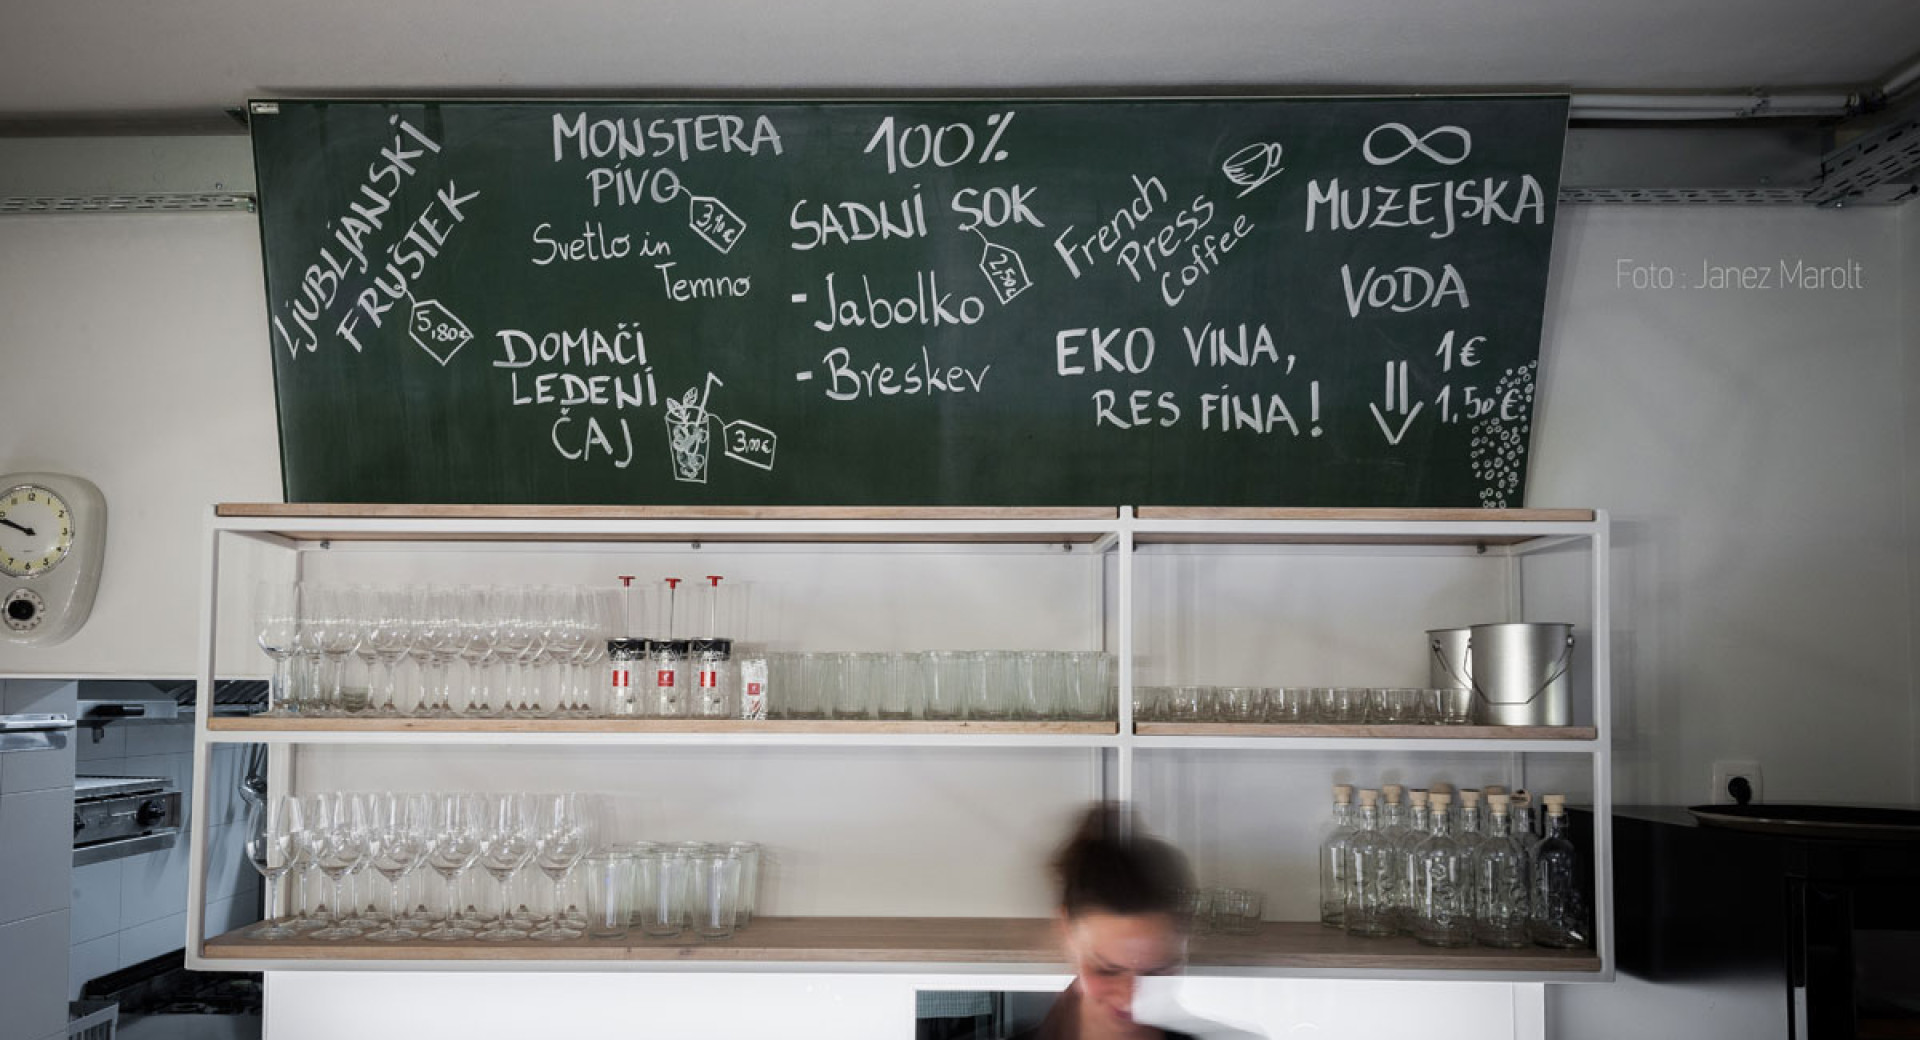 LJUBLJANSKI
FRUŠTEK
5,80€
MONSTERA
PIVO
3,10€
Svetlo in
Temno
DOMAČI
LEDENI
ČAJ
3,00€
100%
SADNI SOK
2,50€
- Jabolko
- Breskev
French
Press
Coffee
EKO VINA,
RES FINA!
∞
MUZEJSKA
VODA
1€
1,50€
Foto : Janez Marolt